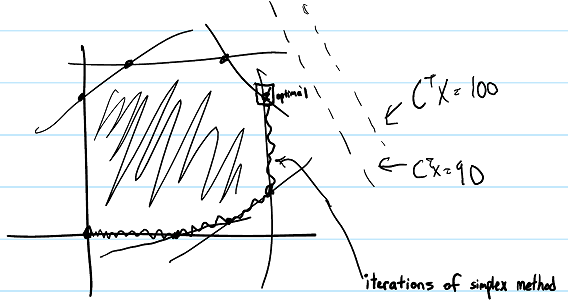 optimal
CᵀX = 100
CᵀX = 90
iterations of simplex method